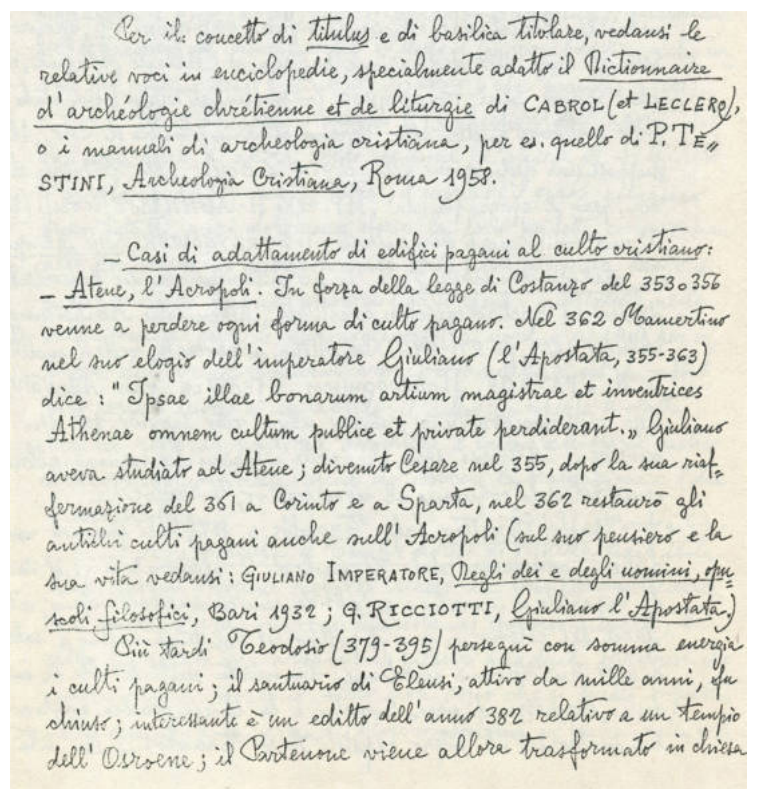 Per il: concetto di titulus e di basilica titolare, vedansi le
relative voci in enciclopedie, specialmente adatto il Dictionnaire
d'archéologie chrétienne et de liturgie di CABROL (et LECLERQ),
o i manuali di archeologia cristiana, per es. quello di P. TE„
STINI, Archeologia Cristiana, Roma 1958.
– Casi di adattamento di edifici pagani al culto cristiano:
– Atene, l'Acropoli. In forza della legge di Costanzo del 353 o 356
venne a perdere ogni forma di culto pagano. Nel 362 Mamertino
nel suo elogio dell'imperatore Giuliano (l'Apostata, 355-363)
dice : "Ipsae illae bonarum artium magistrae et inventrices
Athenae omnem cultum publice et private perdiderant.„ Giuliano
aveva studiato ad Atene ; divenuto Cesare nel 355, dopo la sua riaf„
fermazione del 361 a Corinto e a Sparta, nel 362 restaurò gli
antichi culti pagani anche sull'Acropoli (sul suo pensiero e la
sua vita vedansi : GIULIANO IMPERATORE, Degli dei e degli uomini, opu„
scoli filosofici, Bari 1932 ; G. RICCIOTTI, Giuliano l'Apostata.)
Più tardi Teodosio (379-395) perseguì con somma energia
i culti pagani ; il santuario di Eleusi, attivo da mille anni, fu
chiuso ; interessante è un editto dell'anno 382 relativo a un tempio
dell'Osroene ; il Partenone viene allora trasformato in chiesa